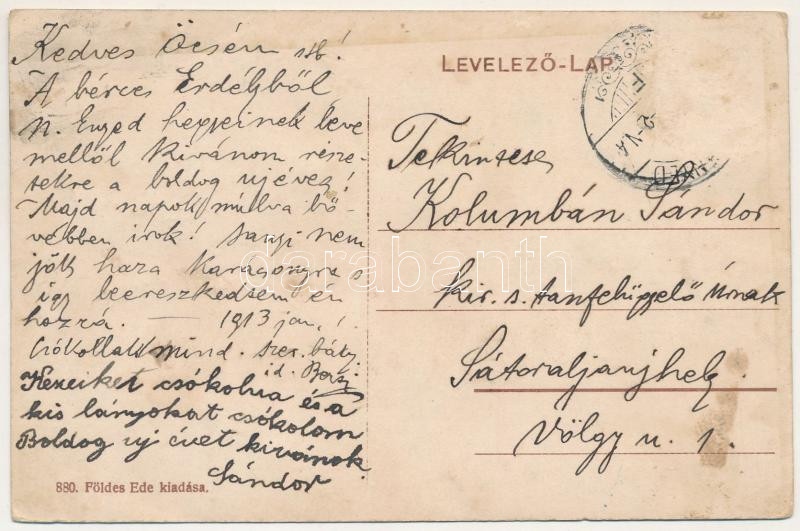 Kedves Öcsém stb!
A bérces Erdélyből
N. Enyed hegyeinek leve
mellől kivánom része-
tekre a boldog ujévet!
Majd napok mulva bő-
vebben irok! Sanyi nem
jött haza Karácsonyra s
így leereszkedtem én
hozzá. — 1913 jan. 1.
Csókollak mind. szer. bátyj.
id.
Kezeiket csókolva és a
kis lányokat csókolom
Boldog uj évet kivánok.
Sándor
880. Földes Ede kiadása.
LEVELEZŐ-LAP
Tekintetes
Kolumbán Sándor
kir. s. tanfelügyelő Urnak
Sátoraljaujhely
Völgy u. 1.
darabanth